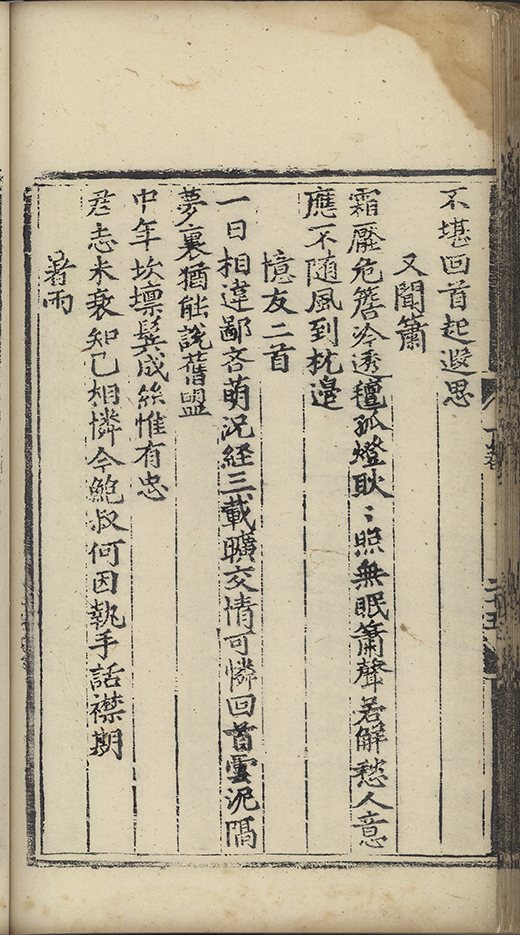 不堪回首起遐思
又聞簫
霜壓危簷冷透氊孤燈耿〻照無眠簫聲若解愁人意
應不随風到枕邊
憶友二首
一日相違鄙吝萌况經三載曠交情可憐回首雲泥隔
夢裏猶能說舊盟
中年坎壈鬂成絲惟有忠君志未衰知己相憐今鮑叔何因執手話襟期
暑雨